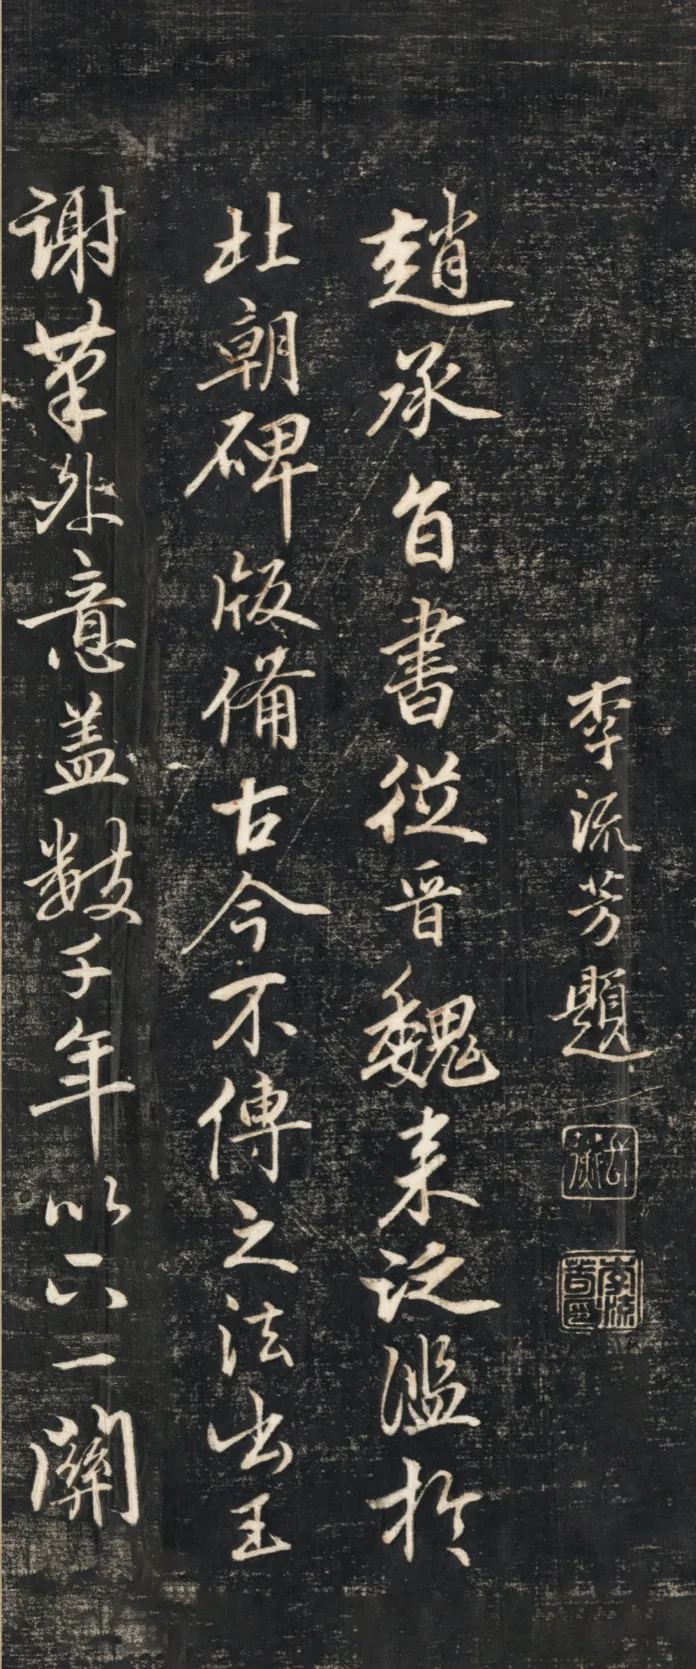 李流芳題
趙承旨書從晉魏来泛濫於
北朝碑版備古今不傳之法出王
謝筆外意盖数千年以六一關